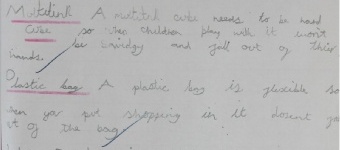 Multilink A multilink cube needs to be hard
Cube so when children play with it won't
be bendy and fall out of their
hands.
Plastic bag A plastic bag is flexible so
when you put shopping in it dosent
out of the bag